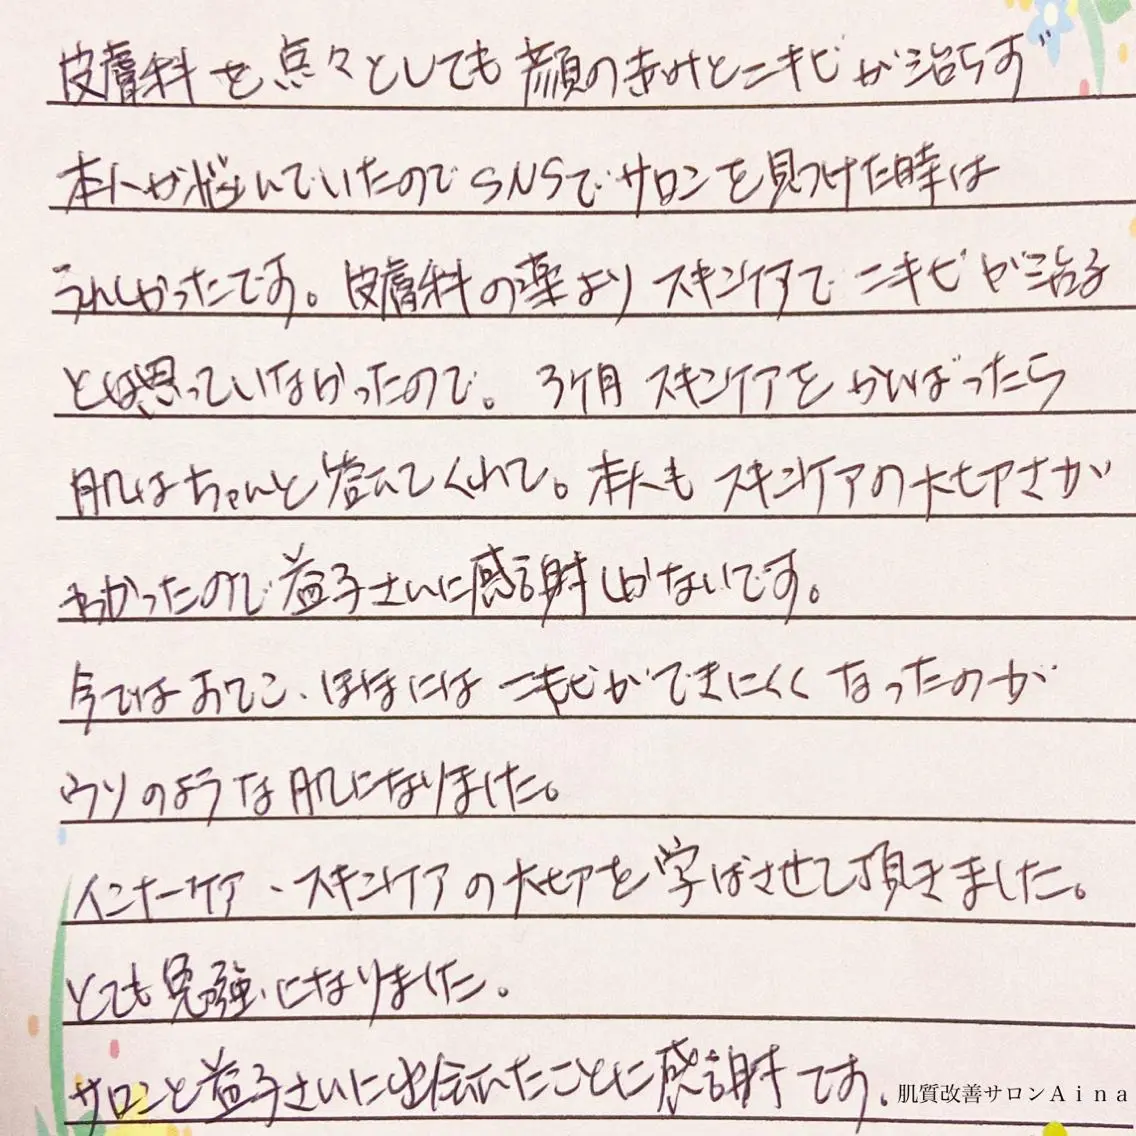 皮膚科を点々としても顔の赤みとニキビが治らず
本人が悩んでいたのでSNSでサロンを見つけた時は
うれしかったです。皮膚科の薬よりスキンケアでニキビが治る
とは思っていなかったので。3ヶ月スキンケアをがんばったら
肌はちゃんと答えてくれて。本人もスキンケアの大切さが
わかったので益子さんに感謝しかないです。
今ではおでこ、ほほにはニキビができにくくなったのが
ウソのような肌になりました。
インナーケア、スキンケアの大切を学ばさせて頂きました。
とても勉強になりました。
サロンと益子さんに出会えたことに感謝です。
肌質改善サロンAina